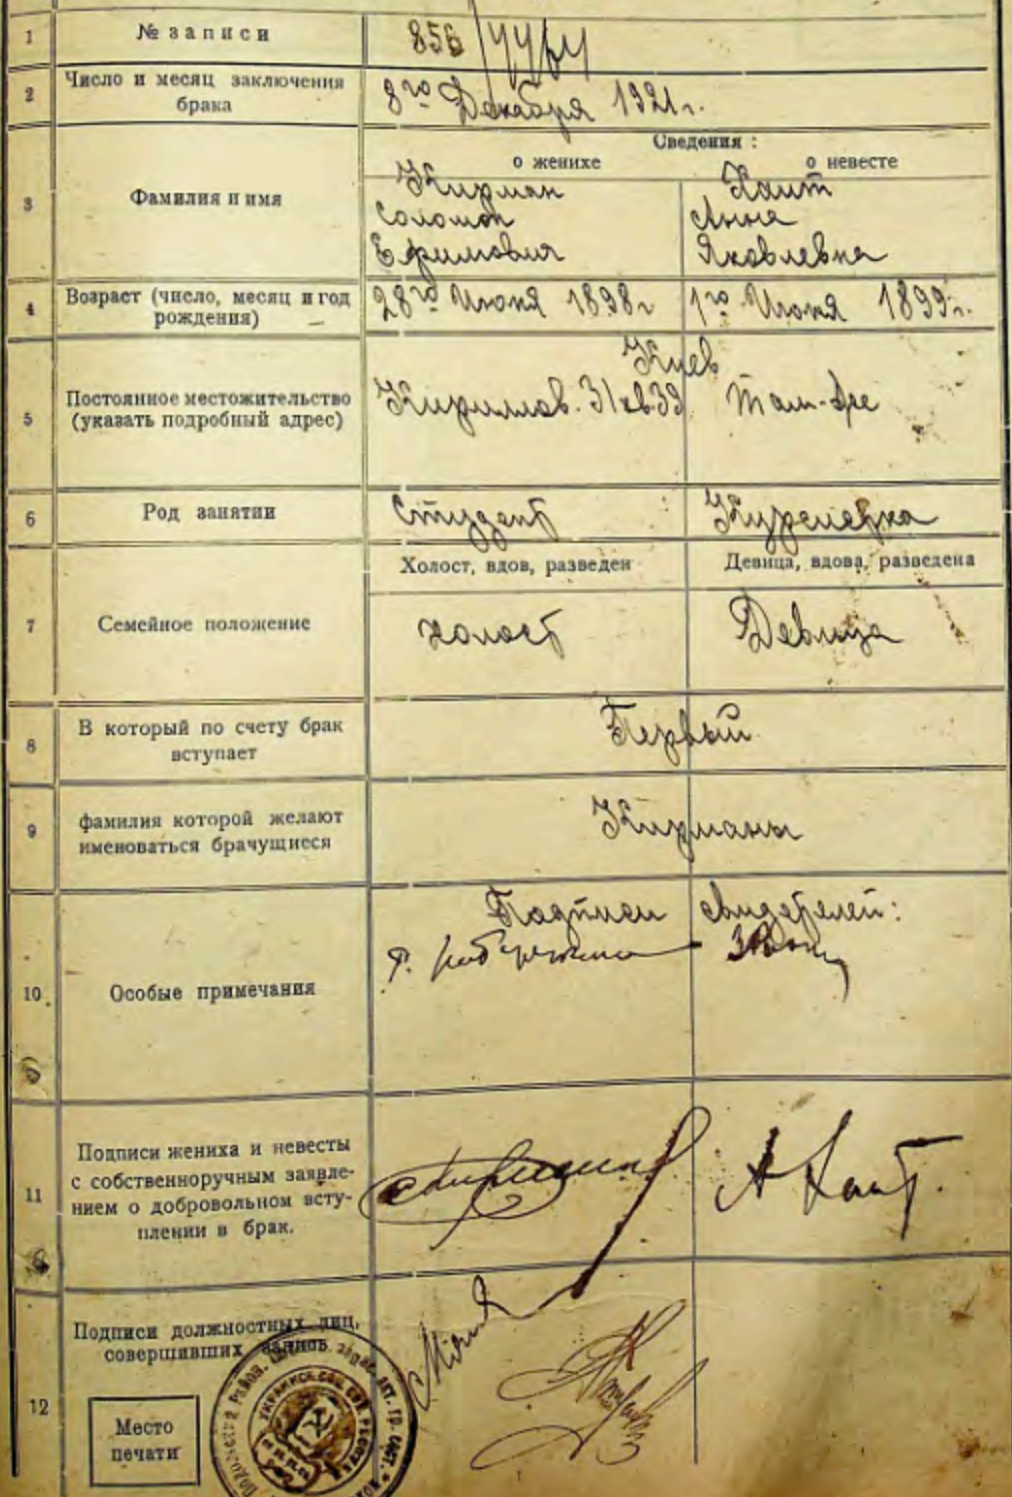 1 № записи 856
2 Число и месяц заключения
брака
8го Декабря 1921 г.
Сведения :
о женихе о невесте
3 Фамилия и имя
Кирман Хаит
Соломон Анна
Ефимович Яковлевна
4 Возраст (число, месяц и год
рождения)
28го Июня 1898 г 1го Июня 1899 г.
5 Постоянное местожительство
(указать подробный адрес)
Киев
Кириллов. 31 кв. 39 Там-же
6 Род занятии Студент
7 Семейное положение
Холост, вдов, разведен Девица, вдова, разведена
холост Девица
8 В который по счету брак
вступает
Первый
9 фамилия которой желают
именоваться брачущиеся
Кирманы
10 Особые примечания
Подписи свидетелей:
11 Подписи жениха и невесты
с собственноручным заявле-
нием о добровольном всту-
плении в брак.
А Хаит.
12 Подписи должностных лиц,
совершивших запись
Место
печати